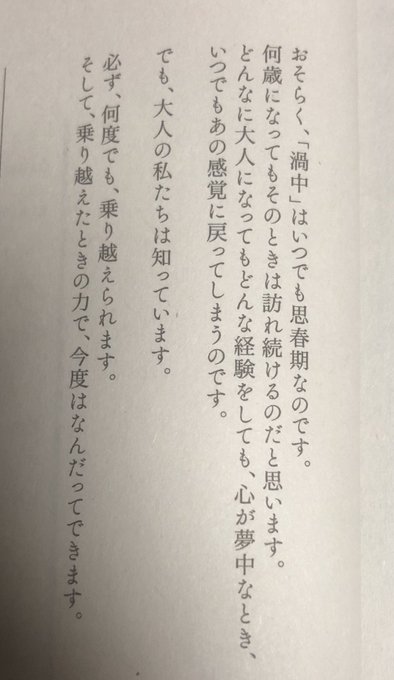 おそらく、「渦中」はいつでも思春期なのです。
何歳になってもそのときは訪れ続けるのだと思います。
どんなに大人になってもどんな経験をしても、心が夢中なとき、
いつでもあの感覚に戻ってしまうのです。
でも、大人の私たちは知っています。
必ず、何度でも、乗り越えられます。
そして、乗り越えたときの力で、今度はなんだってできます。